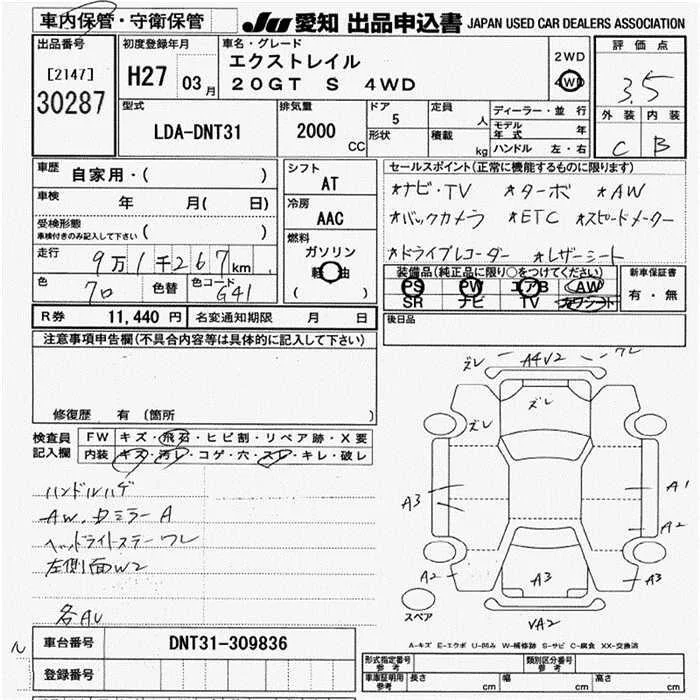 車内保管・守衛保管
JU 愛知 出品申込書 JAPAN USED CAR DEALERS ASSOCIATION
出品番号
[2147]
30287
初度登録年月
H27 03月
車名・グレード
エクストレイル
20GT S 4WD
2WD
4WD
評価点
3.5
外装 内装
C B
型式
LDA-DNT31
排気量
2000 CC
ドア
5
形状
定員
人
積載
kg
ディーラー・並行
モデル年式 年
ハンドル 左・右
車歴
自家用・( )
車検
年 月( 日)
受検形態
車検付きのみ記入して下さい ( )
走行
9万1千267km
色
クロ
色替
色コード
G41
シフト
AT
冷房
AAC
燃料
ガソリン
軽油
( )
セールスポイント(正常に機能するものに限ります)
*ナビ・TV *ターボ *AW
*バックカメラ *ETC *スピードメーター
*ドライブレコーダー *レザーシート
装備品(純正品に限り○をつけてください)
PS PW エアB AW
SR ナビ TV カワシート
新車保証書
有・無
R券 11,440 円 名変通知期限 月 日
後日品
注意事項申告欄(不具合内容等は具体的に記入して下さい)
修復歴 有 (箇所 )
検査員記入欄
FW キズ・飛石・ヒビ割・リペア跡・X要
内装 キズ・汚レ・コゲ・穴・スレ・キレ・破レ
ハンドルハゲ
AW、Dミラー A
ヘッドライトステー ワレ
左側面W2
各AU
ズレ A4V2 ワレ
ズレ
ズレ
A3
A1
A2
A2
A3
A3
VA2
スペア
A-キズ E-エクボ U-凹み W-補修跡 S-サビ C-腐食 XX-交換済
車台番号 DNT31-309836
登録番号
形式指定番号 参考
類別区分番号 参考
車庫証明用 参考 長さ cm 幅 cm 高さ cm